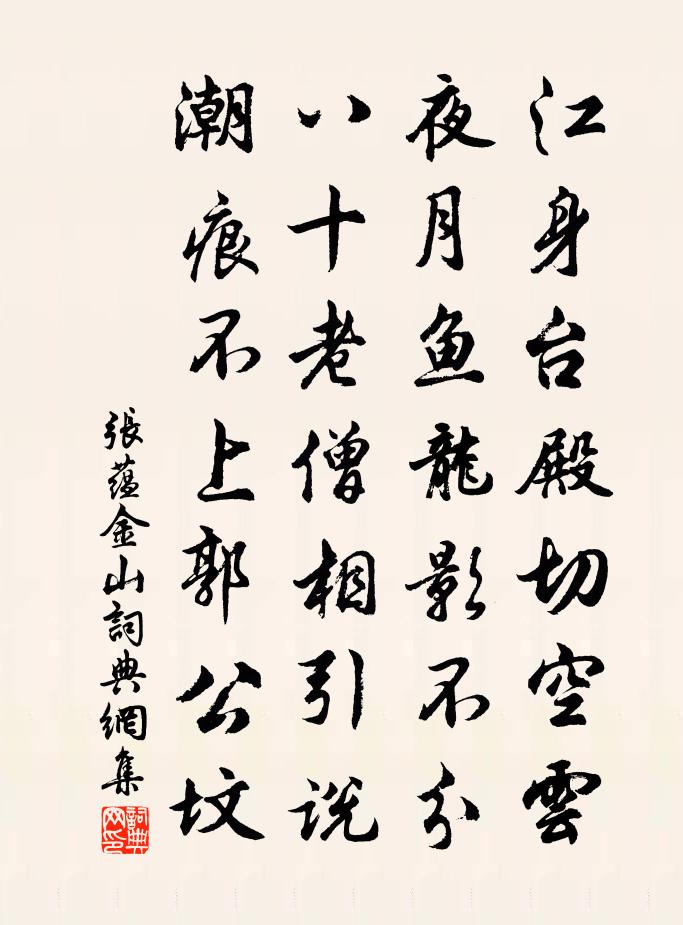 江身台殿切空雲
夜月鱼龍影不分
八十老僧相引说
潮痕不上郭公坟
張蕴金山詞典網集
詞典網印